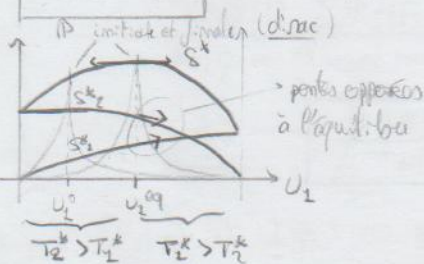 ℙ initiale et finales (dirac)
S*
S*₂
S*₁
pentes opposées
à l'équilibre
U₁
U₁⁰ U₁^eq
T₂* > T₁* T₁* > T₂*